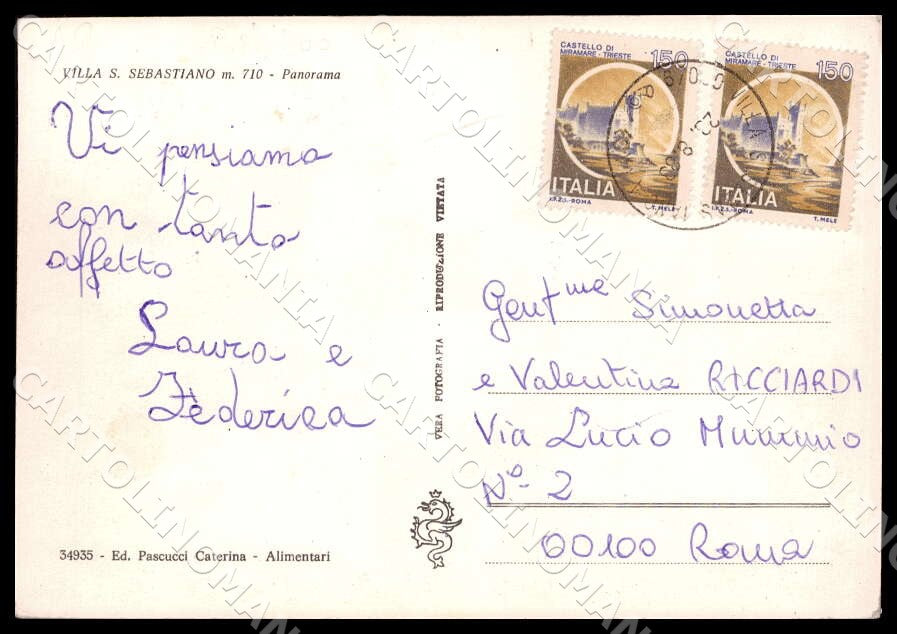 VILLA S. SEBASTIANO m. 710 - Panorama
Vi pensiamo
con tanto
affetto
Laura e
Federica
34935 - Ed. Pascucci Caterina - Alimentari
VERA FOTOGRAFIA - RIPRODUZIONE VIETATA
CASTELLO DI
MIRAMARE - TRIESTE
150
ITALIA
I.P.Z.S.-ROMA
T. MELE
CASTELLO DI
MIRAMARE - TRIESTE
150
ITALIA
I.P.Z.S.-ROMA
T. MELE
Gent me Simonetta
e Valentina RICCIARDI
Via Lucio Mummio
No. 2
00100 Roma
CARTOLINOMANIA